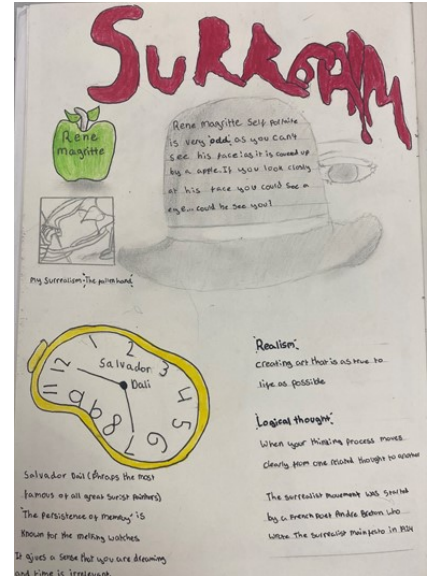 SURREALISM
Rene
magritte
Rene magritte Self portaite
is very "odd" as you can't
see his face as it is covered up
by a apple. If you look closely
at his face you could see a
eye... could he see you?
My Surrealism "The pollen hand"
1
2
3
4
5
6
7
8
9
9
11
12
Salvador
Dali
Salvador Dali (Phraps the most
famous of all great surist painters)
"The Persistence of memory" is
known for the melting watches
It gives a sense that you are dreaming
and time is irrelevant
Realism.
creating art that is as true to
life as possible
Logical thought.
When your thinking process moves
clearly from one related thought to another
The surrealist movement was started
by a French poet Andre Breton who
wrote The surrealist mainfesto in 1924